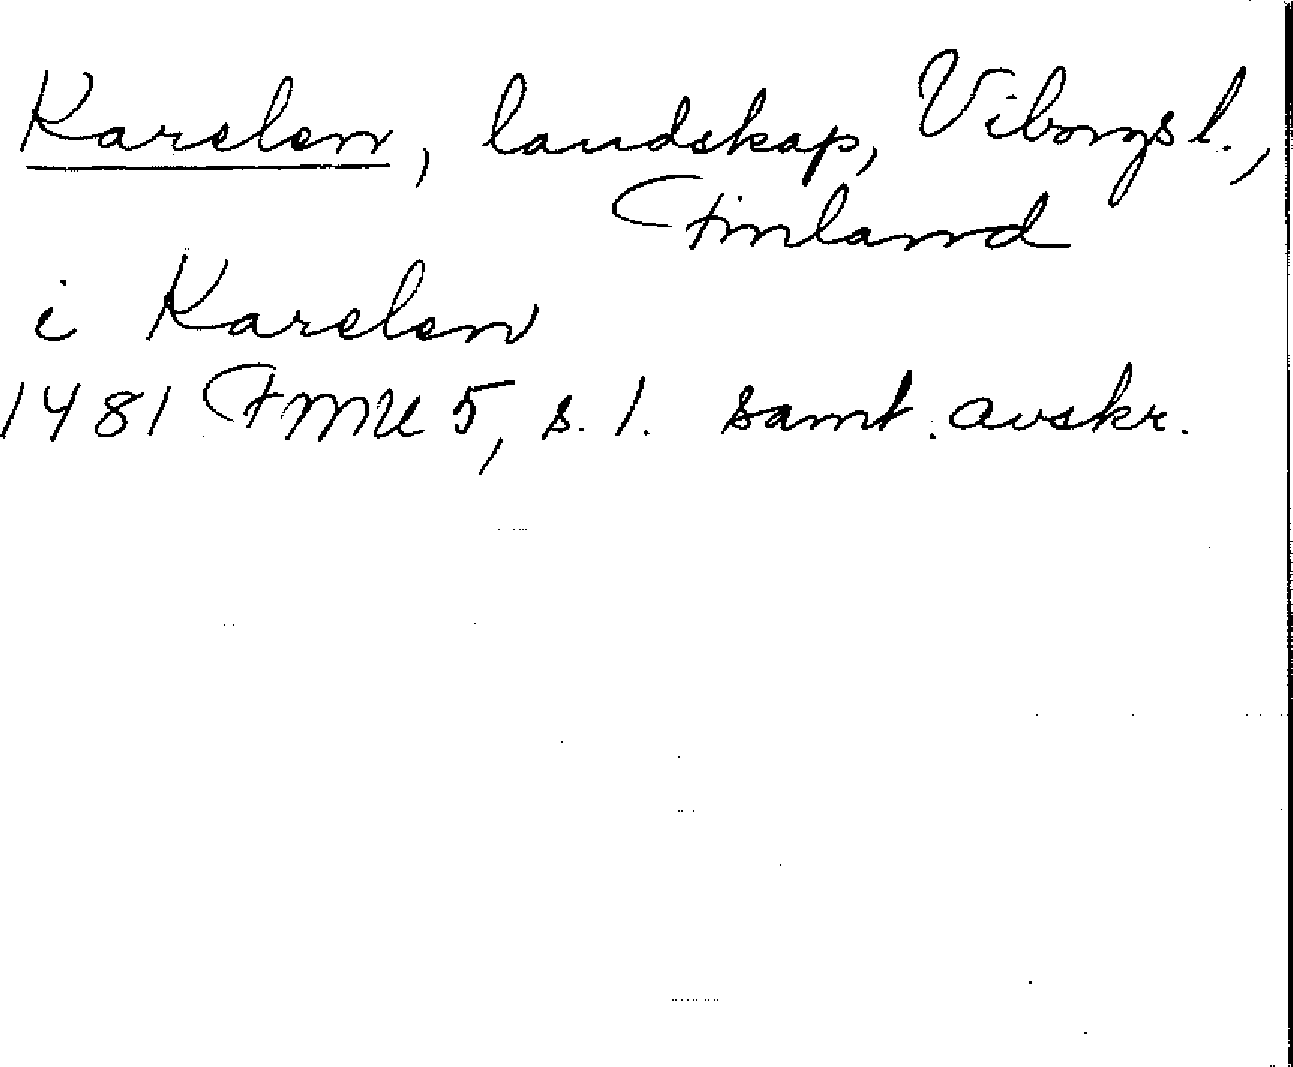 Karelen, landskap, Viborgs l.,
Finland
i Karelen
1481 FMU 5, s. 1. samt. avskr.